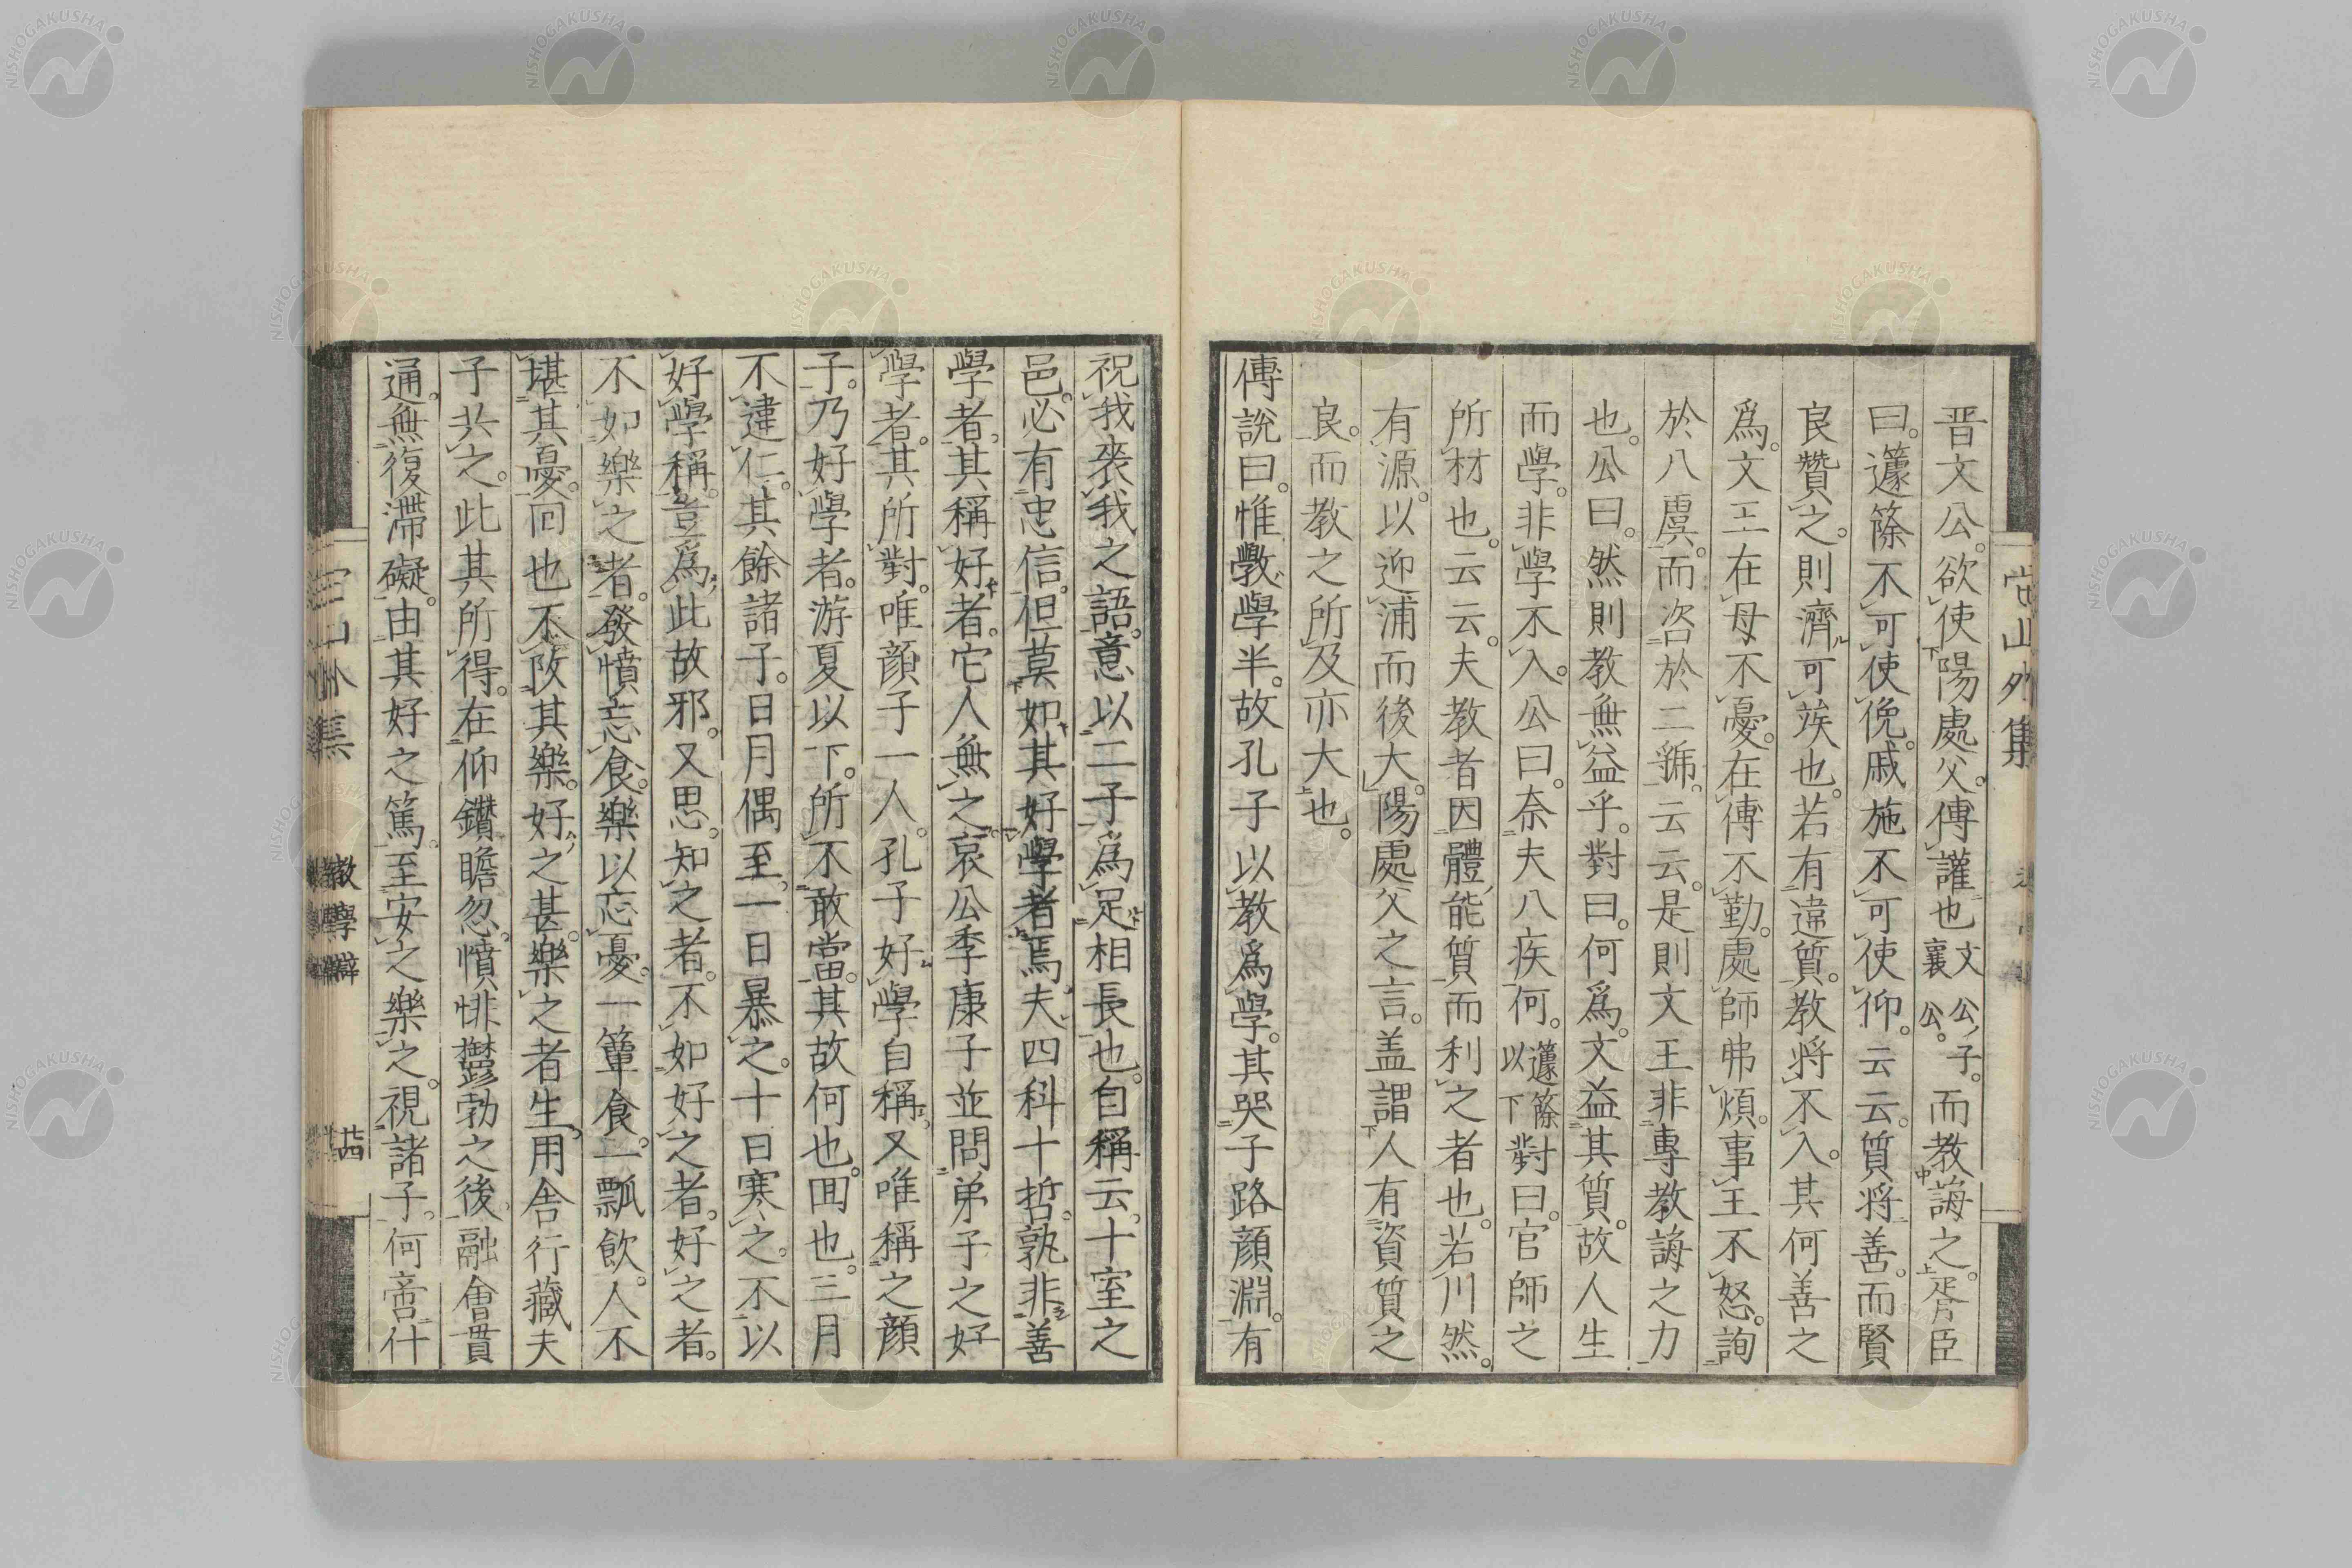 晋文公。欲使陽處父。傅讙也文公ノ子。襄公。而教誨之。胥臣
曰。籧篨不可使俛。戚施不可使仰。云云。質将善。而賢
良贊之。則濟可竢也。若有違質。教将不入。其何善之
爲。文王在母不憂。在傅不勤。處師弗煩。事王不怒。詢
於八虞。而咨於二虢。云云。是則文王非專教誨之力
也。公曰。然則教無益乎。對曰。何爲。文益其質。故人生
而學。非學不入。公曰。奈夫八疾何。籧篨以下對曰。官師之
所材也。云云。夫教者因體能質而利之者也。若川然。
有源。以迎浦而後大。陽處父之言。盖謂人有資質之
良。而教之所及亦大也。
傳說曰。惟斆學半。故孔子以教爲學。其哭子路顔淵。有
祝我喪我之語。意以二子爲足相長也。自稱云。十室之
邑。必有忠信。但莫如其好學者焉。夫四科十哲。孰非善
學者。其稱好者。它人無之。哀公季康子並問弟子之好
學者。其所對。唯顔子一人。孔子好學自稱。又唯稱之顔
子。乃好學者。游夏以下。所不敢當。其故何也。回也。三月
不違仁。其餘諸子。日月偶至。一日暴之。十日寒之。不以
好學稱。豈爲此故邪。又思。知之者。不如好之者。好之者。
不如樂之者。發憤忘食。樂以忘憂。一簞食。一瓢飲。人不
堪其憂。回也不改其樂。好之甚。樂之者生。用舎行藏夫
子共之。此其所得。在仰鑽瞻忽。憤悱鬱勃之後。融會貫
通。無復滞礙。由其好之篤。至安之樂之。視諸子。何啻什
教學辯
廿四